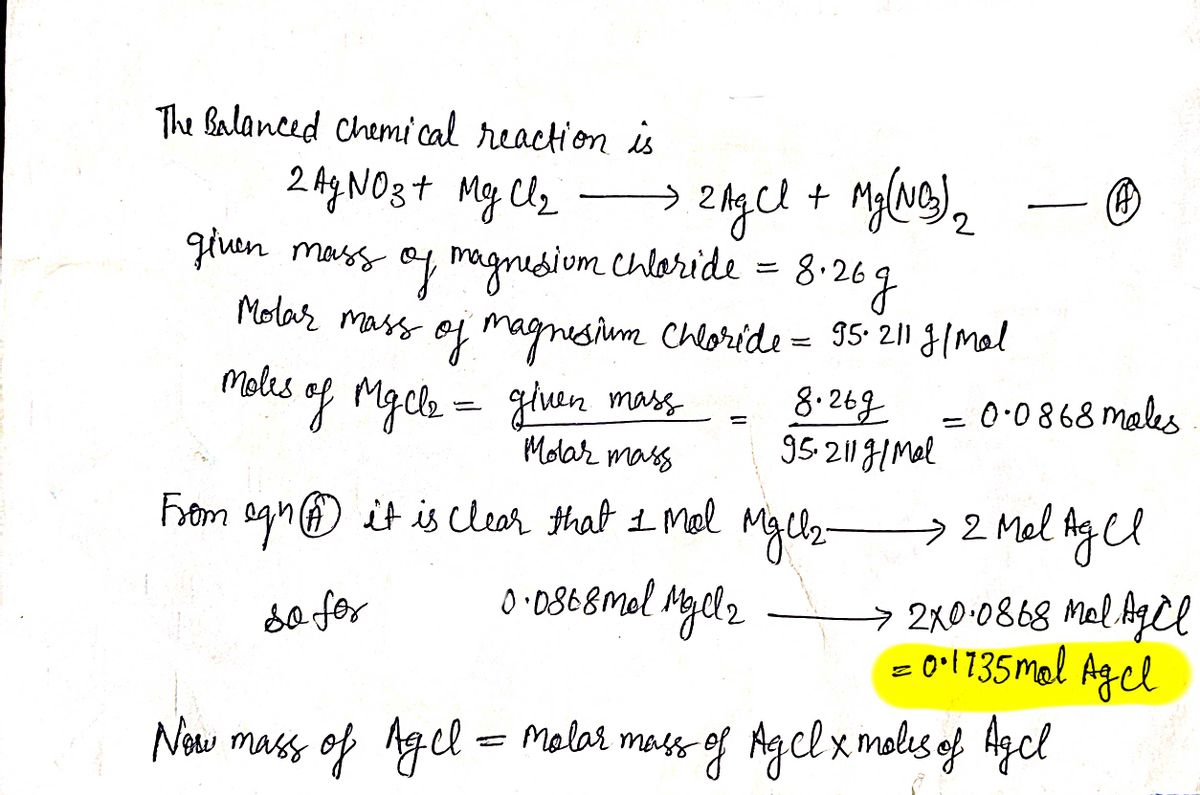 The Balanced chemical reaction is
2 AgNO3 + MgCl2 ⟶ 2AgCl + Mg(NO3)2 — Ⓐ
given mass of magnesium chloride = 8.26g
Molar mass of magnesium chloride = 95.211 g/mol
moles of MgCl2 = given mass / Molar mass = 8.26g / 95.211 g/mol = 0.0868 moles
From eqn Ⓐ it is clear that 1 mol MgCl2 ⟶ 2 mol AgCl
so for 0.0868 mol MgCl2 ⟶ 2x0.0868 mol AgCl
= 0.1735 mol AgCl
Now mass of AgCl = molar mass of AgCl x moles of AgCl